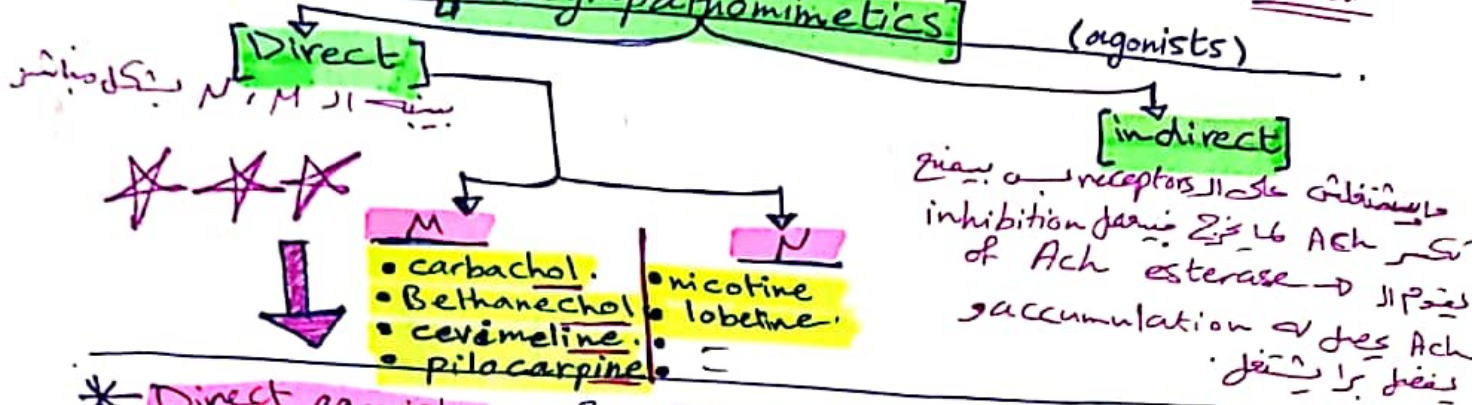 pathomimetics]
(agonists)
[Direct]
بينبه ال M، N بشكل مباشر
[indirect]
مابيشتغلش على ال receptors بيمنع
تكسر Ach لما يخرج فيعمل inhibition
of Ach esterase →
فيقوم ال Ach يحصل له accumulation و
يفضل برا يشتغل.
M
• carbachol.
• Bethanechol
• cevimeline.
• pilocarpine
N
• nicotine
• lobeline.
•
•
* Direct